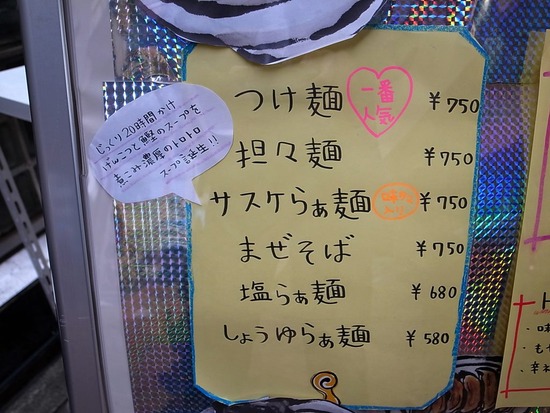 つけ麺 一番人気 ¥750
担々麺 ¥750
サスケらぁ麺 味玉入り ¥750
まぜそば ¥750
塩らぁ麺 ¥680
しょうゆらぁ麺 ¥580
じっくり20時間かけ
げんこつと鰹のスープを
煮こみ濃厚のトロトロ
スープ誕生!!